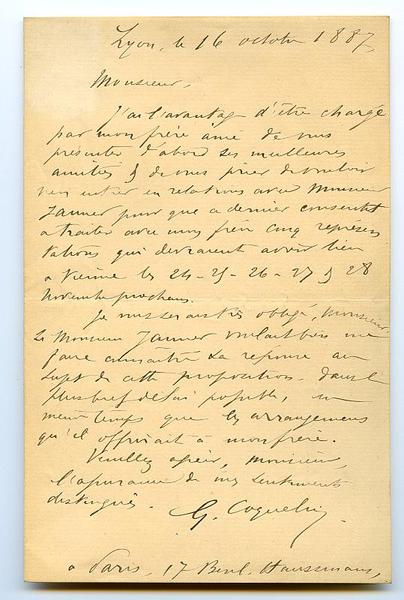 Lyon, le 16 octobre 1887,
Monsieur,
J'ai l'avantage d'être chargé
par mon frère aîné de vous
présenter d'abord ses meilleures
amitiés & de vous prier de vouloir
bien entrer en relations avec Monsieur
Jauner pour que ce dernier consentit
à traiter avec mon frère cinq représen
tations qui devraient avoir lieu
à Vienne les 24 - 25 - 26 - 27 & 28
Novembre prochains.
Je vous serais très obligé, Monsieur
si Monsieur Jauner voulait bien me
faire connaître sa réponse au
sujet de cette proposition dans le
plus bref délai possible, en
même temps que les arrangements
qu'il offrirait à mon frère.
Veuillez agréer, Monsieur,
l'assurance de mes sentiments
distingués.
G. Coquelin.
à Paris, 17 Boul. Haussmann,